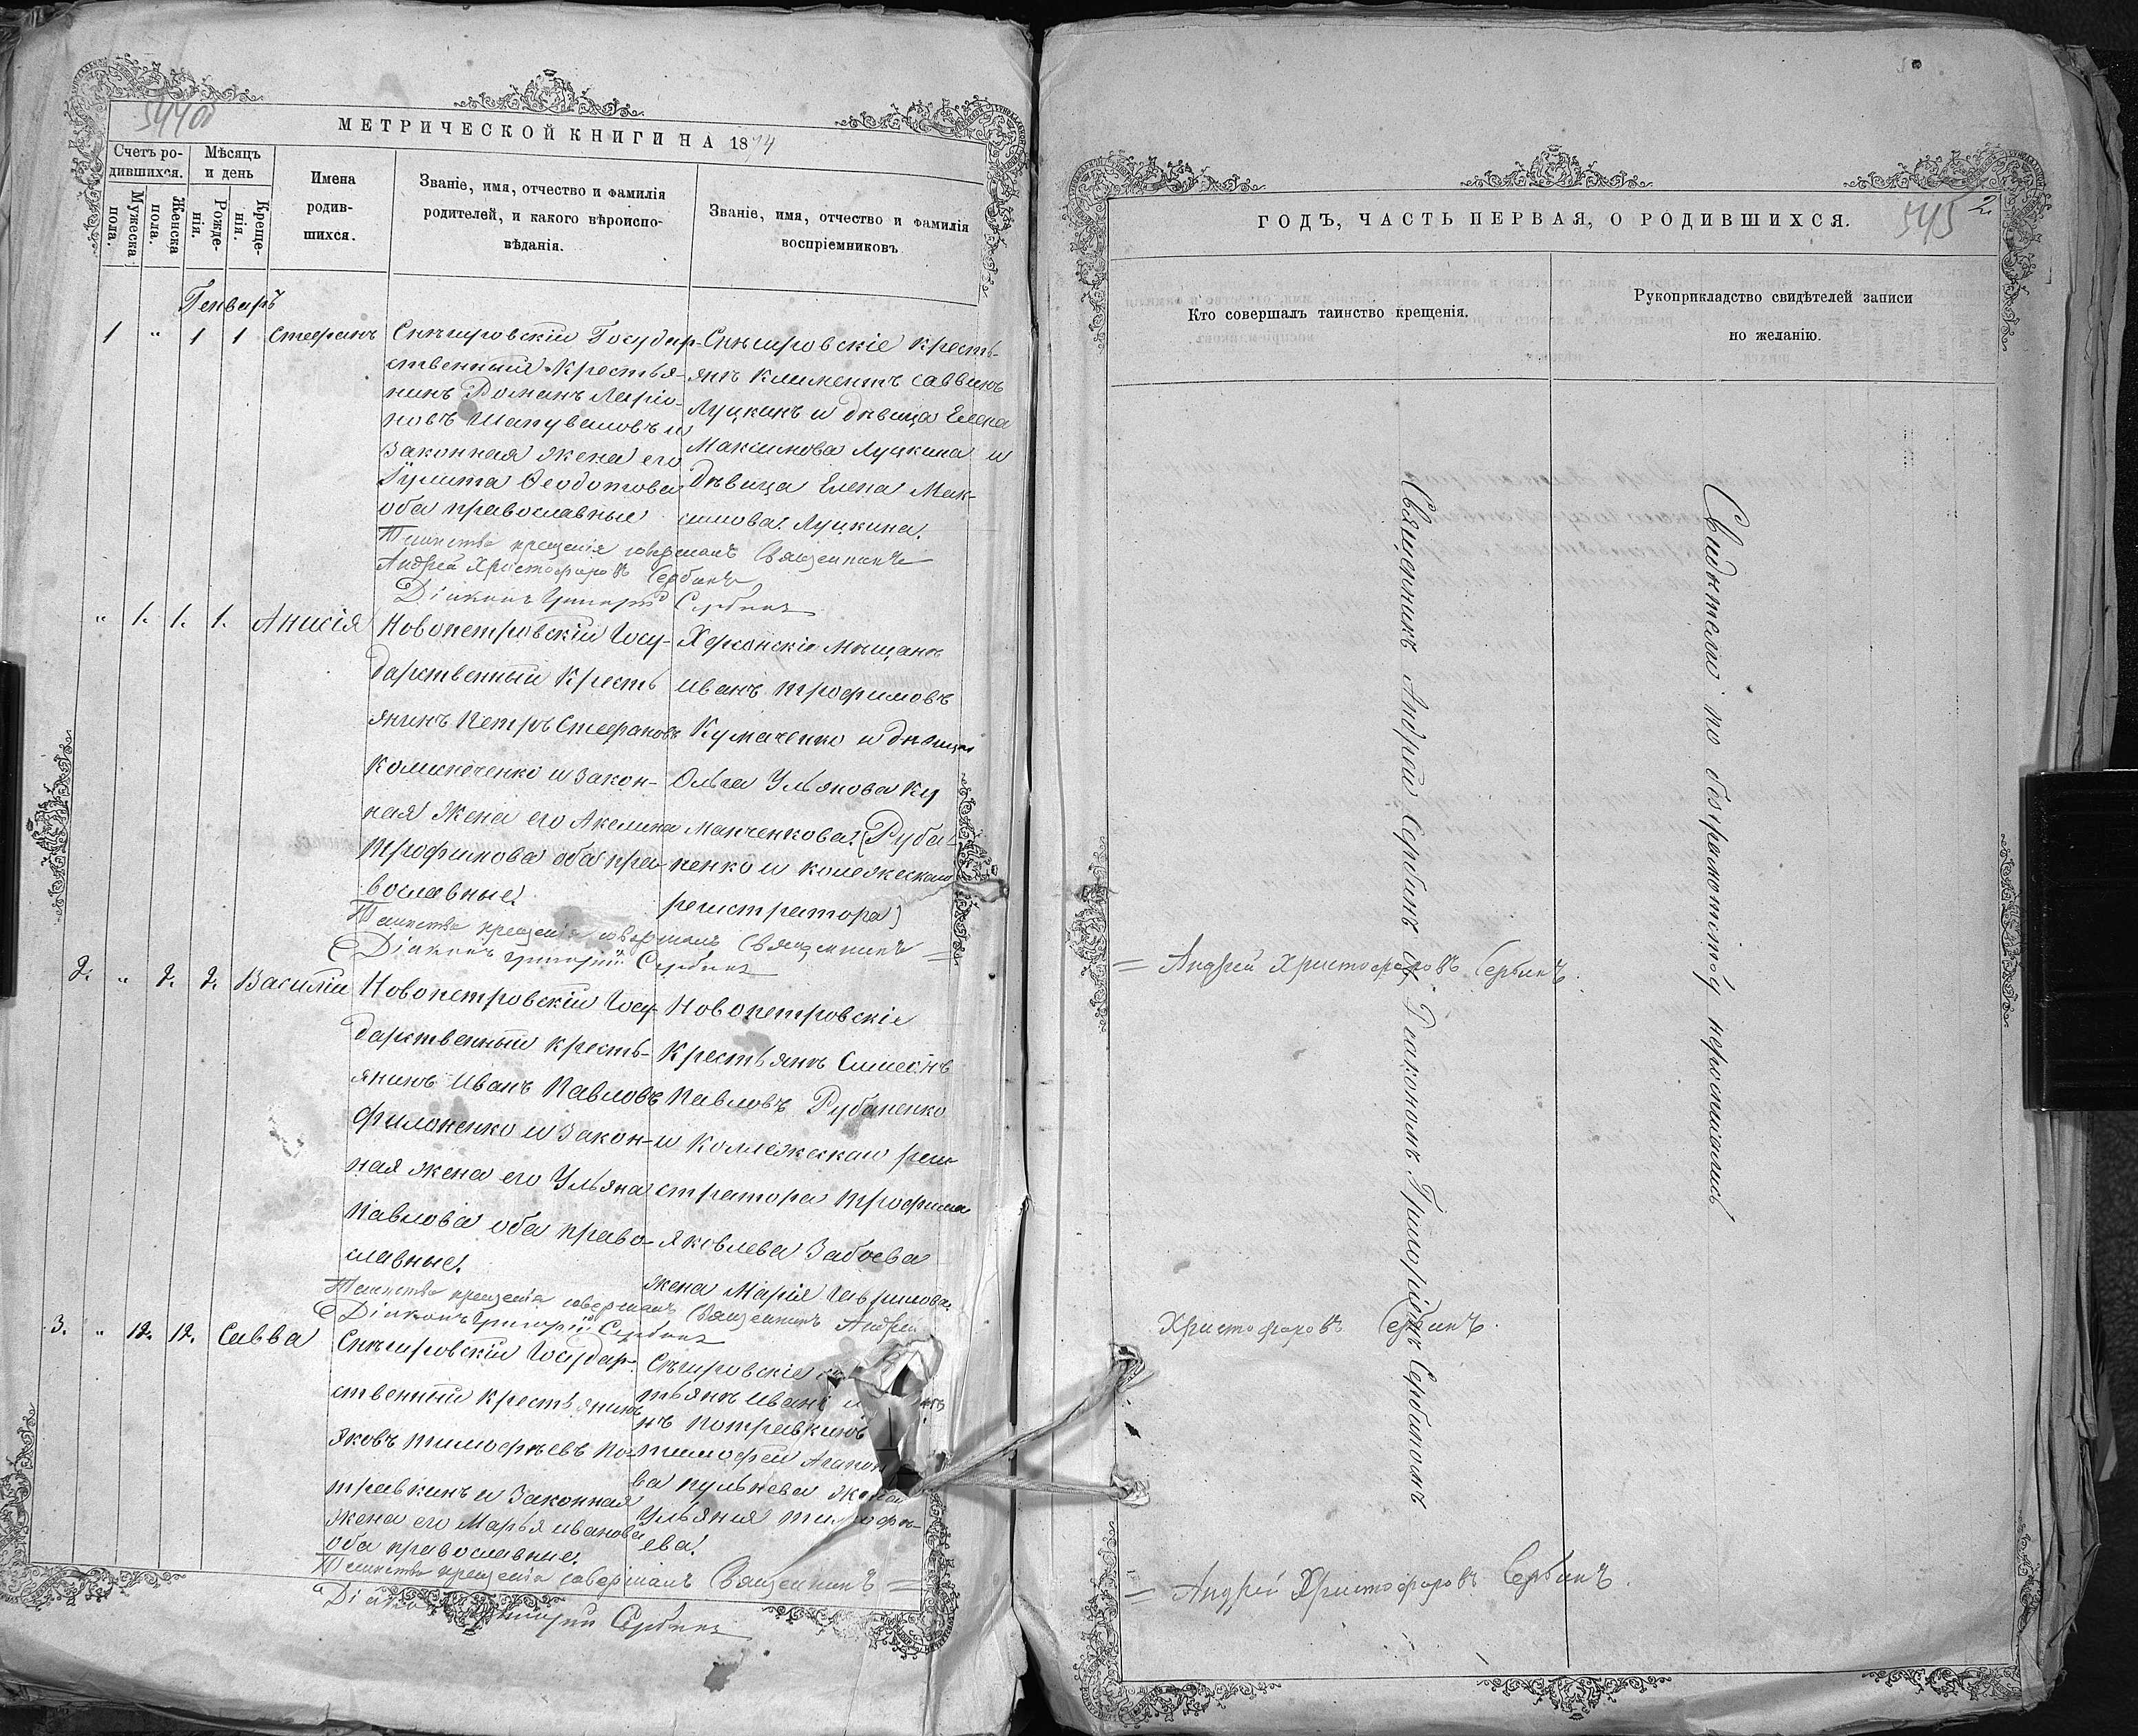 544об
МЕТРИЧЕСКОЙ КНИГИ НА 1874
Счетъ ро-
дившихся.
Мѣсяцъ
и день
Мужеска
пола.
Женска
пола.
Рожде-
нія.
Креще-
нія.
Имена
родив-
шихся.
Званіе, имя, отчество и фамилія
родителей, и какого вѣроиспо-
вѣданія.
Званіе, имя, отчество и фамилія
воспріемниковъ
Генварь
1 " 1 1 Стефанъ
Снѣгировскій Государ-
ственный Крестья-
нинъ Романъ Ларіо-
новъ Шаповаловъ и
Законная жена его
Іулита Ѳеодотова
оба православные
Снѣгировскіе кресть-
янъ Климентъ Саввинъ
Луцкинъ и дѣвица Елена
Максимова Луцкина и
дѣвица Елена Мак-
симова Луцкина.
Таинство крещенія совершалъ Священникъ
Андрей Христофоровъ Сербинъ
Діаконъ Григорій Сербинъ
" 1. 1. 1. Анисія
Новопетровскій Госу-
дарственный Кресть
янинъ Петръ Стефановъ
и Закон-
ная Жена его Акелина
Трофимова оба пра-
вославные.
Херсонскіе Мѣщанъ
Иванъ Трофимовъ
и дѣвица
Ольга Ульянова Ку
манченкова. (Руба-
ненко и колежскаго
регистратора)
Таинство крещенія совершалъ Священникъ =
Діаконъ Григорій Сербинъ
2. " 2. 2. Василій
Новопетровскій Госу-
дарственный кресть-
янинъ Иванъ Павловъ
Филоненко и Закон-
ная жена его Ульяна
Павлова оба право-
славные.
Новопетровскіе
Крестьянъ Симеонъ
Павловъ Рубаненко
и Коллежскаго реги
стратора Трофима
Яковлева Забоева
жена Марія
Таинство крещенія совершалъ Священникъ Андрей
Діаконъ Григорій Сербинъ
3. " 12. 12. Савва
Снѣгировскій Государ-
ственный крестьянинъ
Яковъ Тимофѣевъ По-
травкинъ и Законная
жена его Марья Иванова
оба православные.
Снѣгировскіе
тьянъ Иванъ
нъ Потравкинъ
Тимофея
ва Пульнева жена
Ульянія Тимофѣ-
ева.
Таинство крещенія совершалъ Священникъ =
Діаконъ Григорій Сербинъ
ГОДЪ, ЧАСТЬ ПЕРВАЯ, О РОДИВШИХСЯ.
545
2.
Кто совершалъ таинство крещенія.
Рукоприкладство свидѣтелей записи
по желанію.
Священникъ Андрей Сербинъ съ Діакономъ Григоріемъ Сербиномъ
Свидѣтели по безграмотству неросписались
= Андрей Христофоровъ Сербинъ.
Христофоровъ Сербинъ.
= Андрей Христофоровъ Сербинъ.